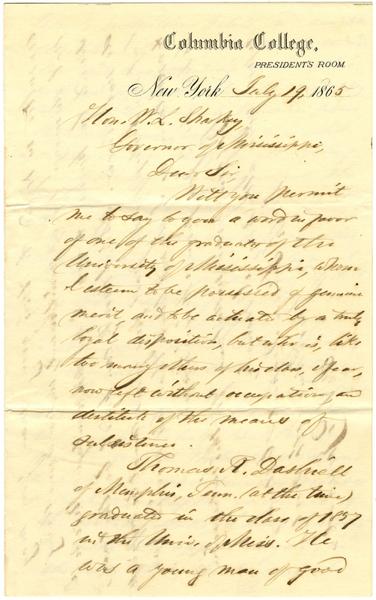 Columbia College,
PRESIDENT'S ROOM
New York July 19, 1865
Hon. W. L. Sharkey,
Governor of Mississippi,
Dear Sir,
Will you permit
me to say to you a word in favor
of one of the graduates of the
University of Mississippi, whom
I esteem to be possessed of genuine
merit and to be actuated by a truly
loyal disposition, but who is, like
too many others of his class, I fear,
now left without occupation and
destitute of the means of
subsistence.
Thomas R. Dashiell
of Memphis, Tenn. (at the time)
graduated in the class of 1857
in the Univ. of Miss. He
was a young man of good